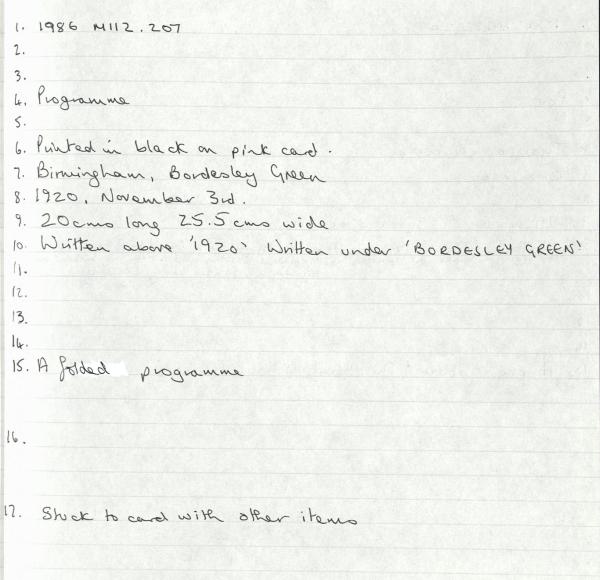 1. 1986 M112.207
2.
3.
4. Programme
5.
6. Printed in black on pink card.
7. Birmingham, Bordesley Green
8. 1920, November 3rd.
9. 20cms long 25.5cms wide
10. Written above '1920' Written under 'BORDESLEY GREEN'
11.
12.
13.
14.
15. A folded programme
16.
17. Stuck to card with other items